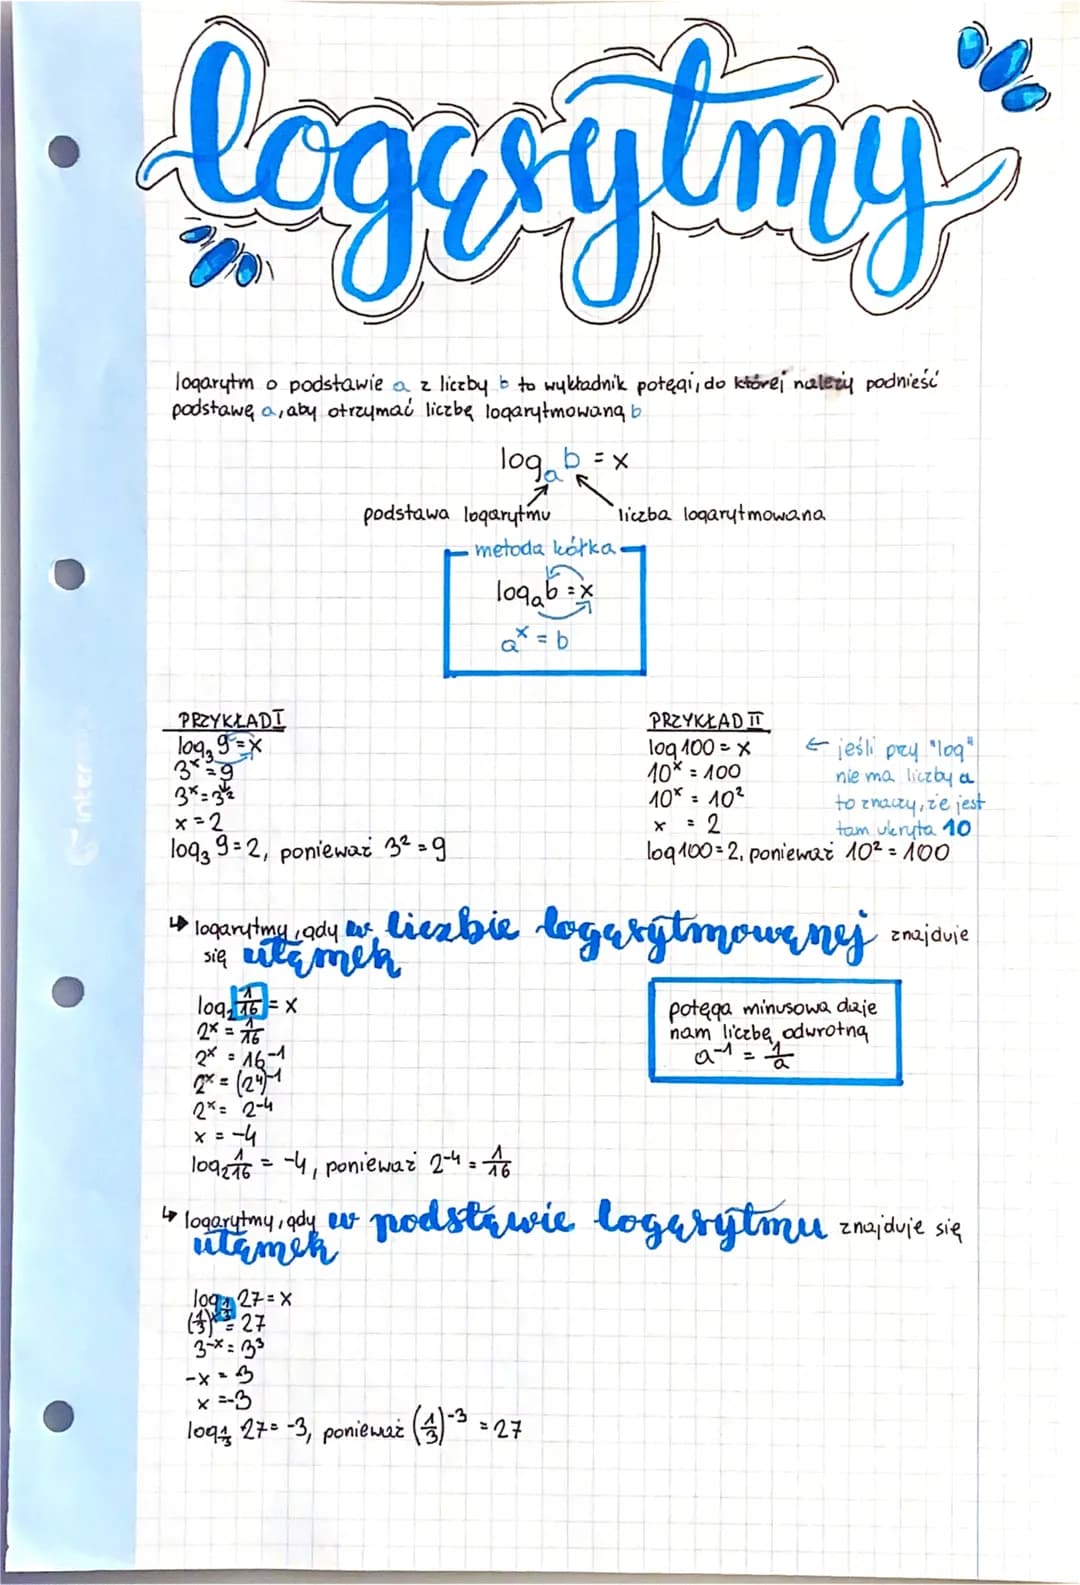 logarytmy
logarytm o podstawie a z liczby b to wykładnik potęgi, do której należy podnieść
podstawę a, aby otrzymać liczbę logarytmowaną b
logₐ b = x
podstawa logarytmu liczba logarytmowana
metoda kółka
logₐ b = x
aˣ = b
PRZYKŁAD I
log₃ 9 = x
3ˣ = 9
3ˣ = 3²
x = 2
log₃ 9 = 2, ponieważ 3² = 9
PRZYKŁAD II
log 100 = x
10ˣ = 100
10ˣ = 10²
x = 2
log 100 = 2, ponieważ 10² = 100
← jeśli przy "log"
nie ma liczby a
to znaczy, że jest
tam ukryta 10
↳ logarytmy, gdy w liczbie logarytmowanej znajduje
się ułamek
log₂ 1/16 = x
2ˣ = 1/16
2ˣ = 16⁻¹
2ˣ = (2⁴)⁻¹
2ˣ = 2⁻⁴
x = -4
log₂ 1/16 = -4, ponieważ 2⁻⁴ = 1/16
potęga minusowa daje
nam liczbę odwrotną
a⁻¹ = 1/a
↳ logarytmy, gdy w podstawie logarytmu znajduje się
ułamek
log_(1/3) 27 = x
(1/3)ˣ = 27
3⁻ˣ = 3³
-x = 3
x = -3
log_(1/3) 27 = -3, ponieważ (1/3)⁻³ = 27